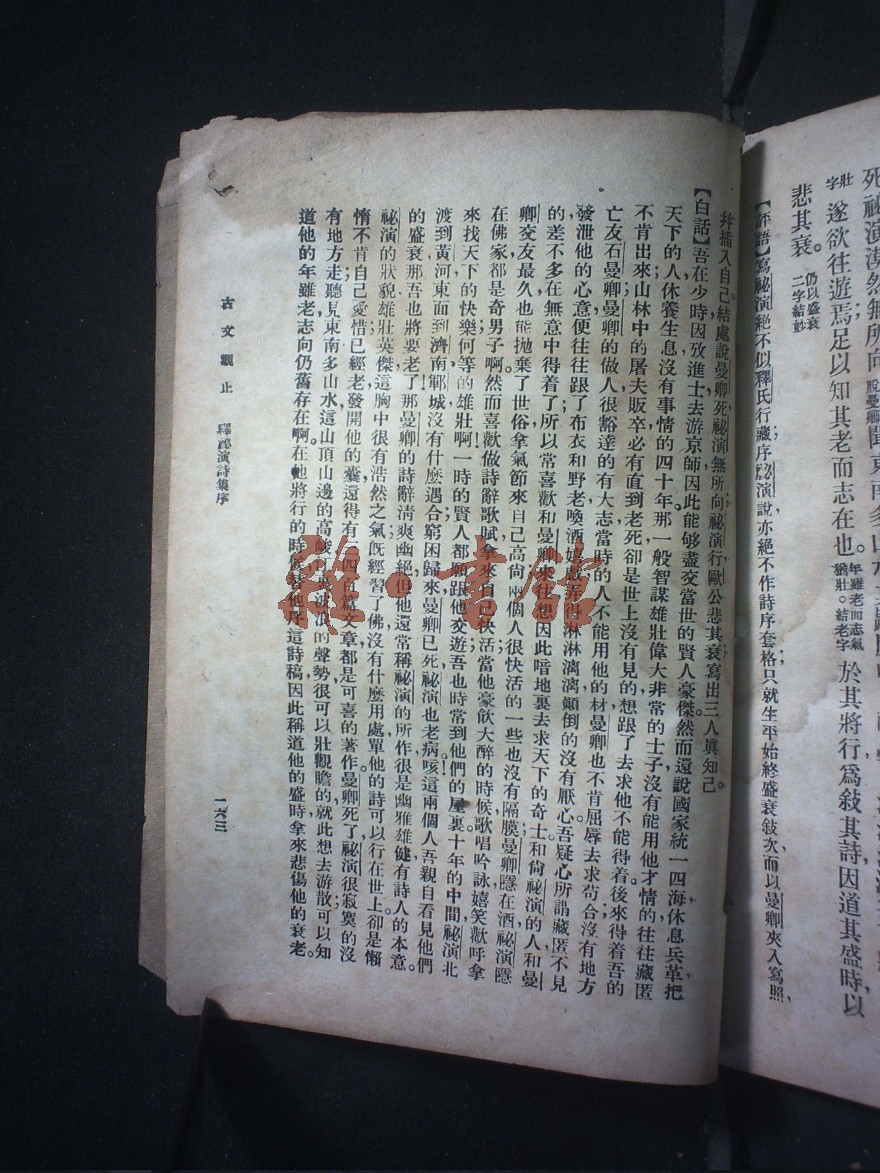 死祕演漠然無所向聞東南多山水
字壯
遂欲往遊焉足以知其老而志在也
年雖老而志氣
猶壯。結老字
於其將行爲敍其詩因道其盛時以
悲其衰。
仍以盛衰
二字結妙
【評語】寫祕演絕不似釋氏行藏序祕演說亦絕不作詩序套格只就生平始終盛衰敍次而以曼卿夾入寫照，
幷插入自己。結處說曼卿死祕演無所向祕演行歐公悲其衰寫出三人眞知己。
【白話】吾在少時因攷進士去游京師因此能够盡交當世的賢人豪傑然而還說國家統一四海休息兵革把
天下的人休養生息沒有事情的四十年那一般智謀雄壯偉大非常的士子沒有能用他才情的往往藏匿
不肯出來山林中的屠夫販卒必有直到老死卻是世上沒有見的想跟了去求他不能得着後來得着吾的
亡友石曼卿曼卿的做人很豁達的有大志當時的人不能用他的材曼卿也不肯屈辱去求苟合沒有地方
發泄他的心意便往往跟了布衣和野老喚酒嬉戲弄得淋淋漓漓顚倒的沒有厭心吾疑心所謂藏匿不見
的差不多在無意中得着了所以常喜歡和曼卿來往想因此暗地裏去求天下的奇士和尙祕演的人和曼
卿交友最久也能抛棄了世俗拿氣節來自己高尙兩個人很快活的一些也沒有隔膜曼卿隱在酒祕演隱
在佛家都是奇男子啊然而喜歡做詩辭歌賦拿來自己快活當他豪飮大醉的時候歌唱吟詠嬉笑歡呼拿
來找天下的快樂何等的雄壯啊！一時的賢人都願跟他交遊吾也時常到他們的屋裏十年的中間祕演北
渡到黃河東面到濟南鄆城沒有什麼遇合窮困歸來曼卿已死祕演也老病咳這兩個人吾親自看見他們
的盛衰那吾也將要老了那曼卿的詩辭淸爽幽絕但他還常稱祕演的所作很是幽雅雄健有詩人的本意。
祕演的狀貌雄壯英傑這胸中很有浩然之氣旣經習了佛沒有什麼用處單他的詩可以行在世上卻是懶
惰不肯自己愛惜已經老發開他的囊還得有三四百篇文章都是可喜的著作曼卿死了祕演很寂寞的沒
有地方走聽見東南多山水這山頂山邊的高峻的聲勢很可以壯觀瞻的就此想去游散可以知
道他的年雖老志向仍舊存在啊在他將行的時候替他序這詩稿因此稱道他的盛時拿來悲傷他的衰老。
古文觀止　釋祕演詩集序
一六三
雜·書館